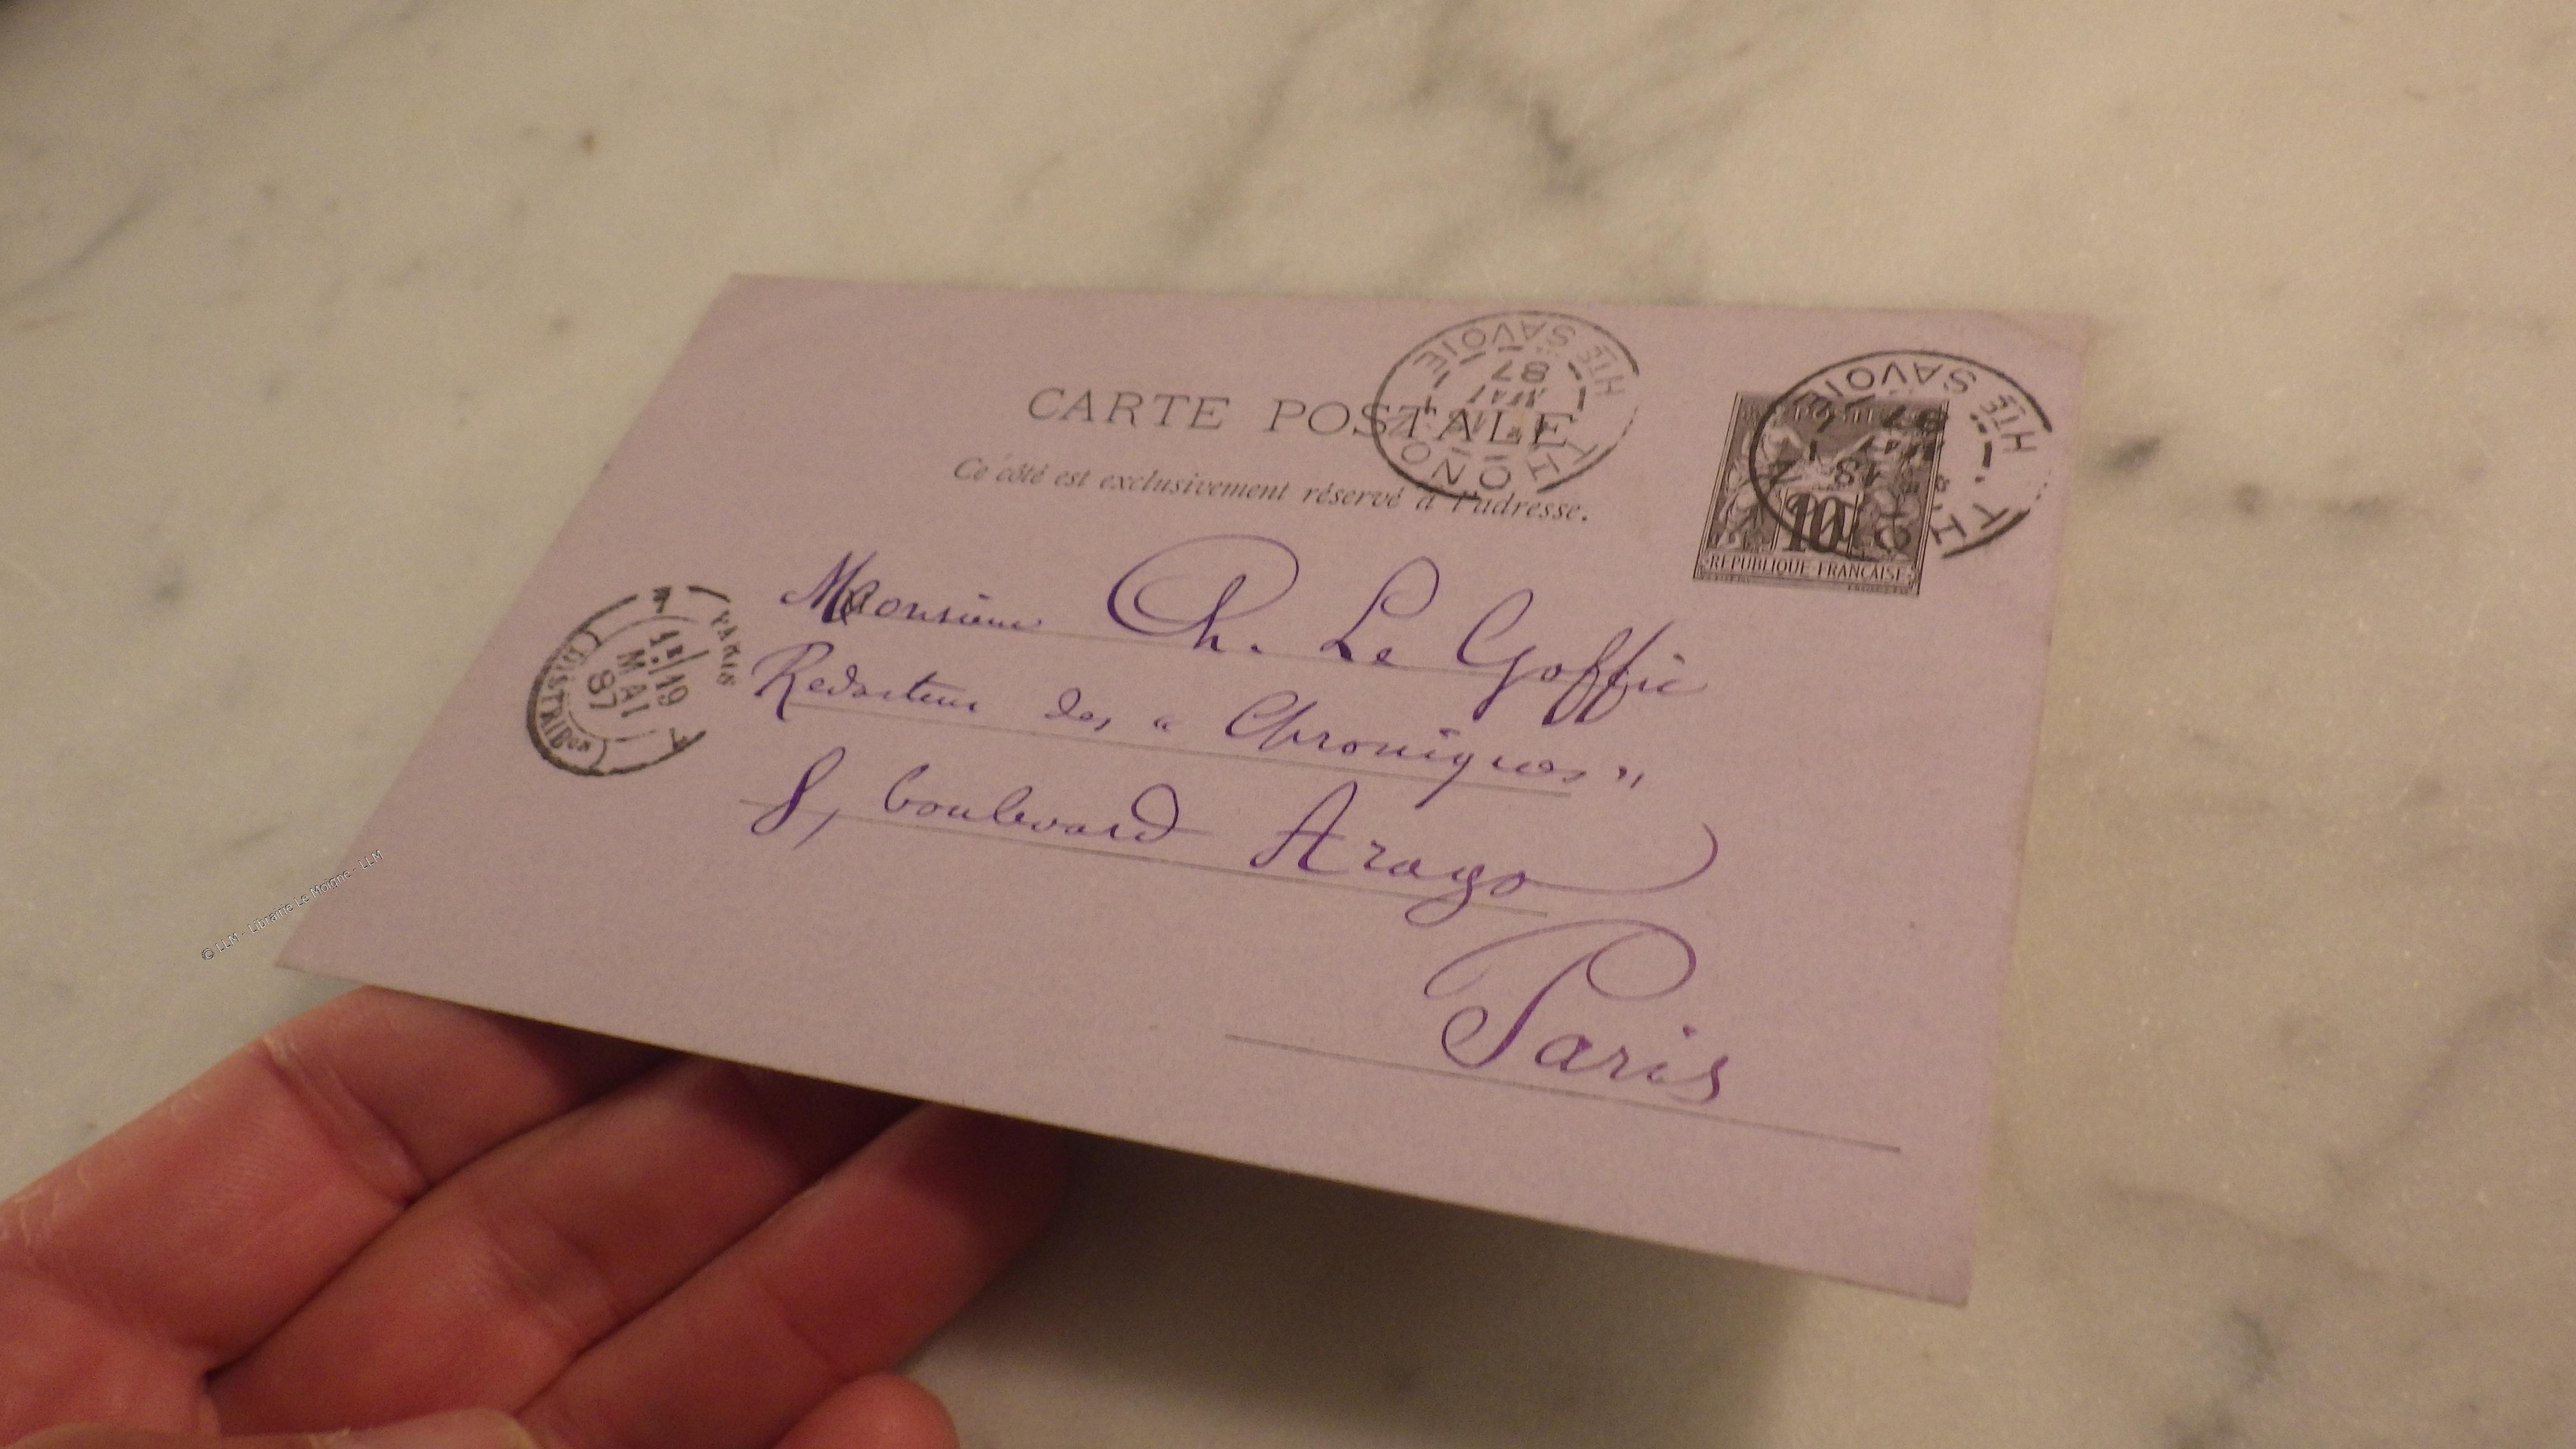 CARTE POSTALE
Ce côté est exclusivement réservé à l'adresse.
THONON
Hte SAVOIE
18
MAI
87
THONON
Hte SAVOIE
18
MAI
87
10
REPUBLIQUE FRANÇAISE
PARIS
19
MAI
87
DISTRIBon
Monsieur Ch. Le Goffic
Redacteur des " Chroniques "
8, boulevard Arago
Paris
© LLM - Librairie Le Moigne - LLM